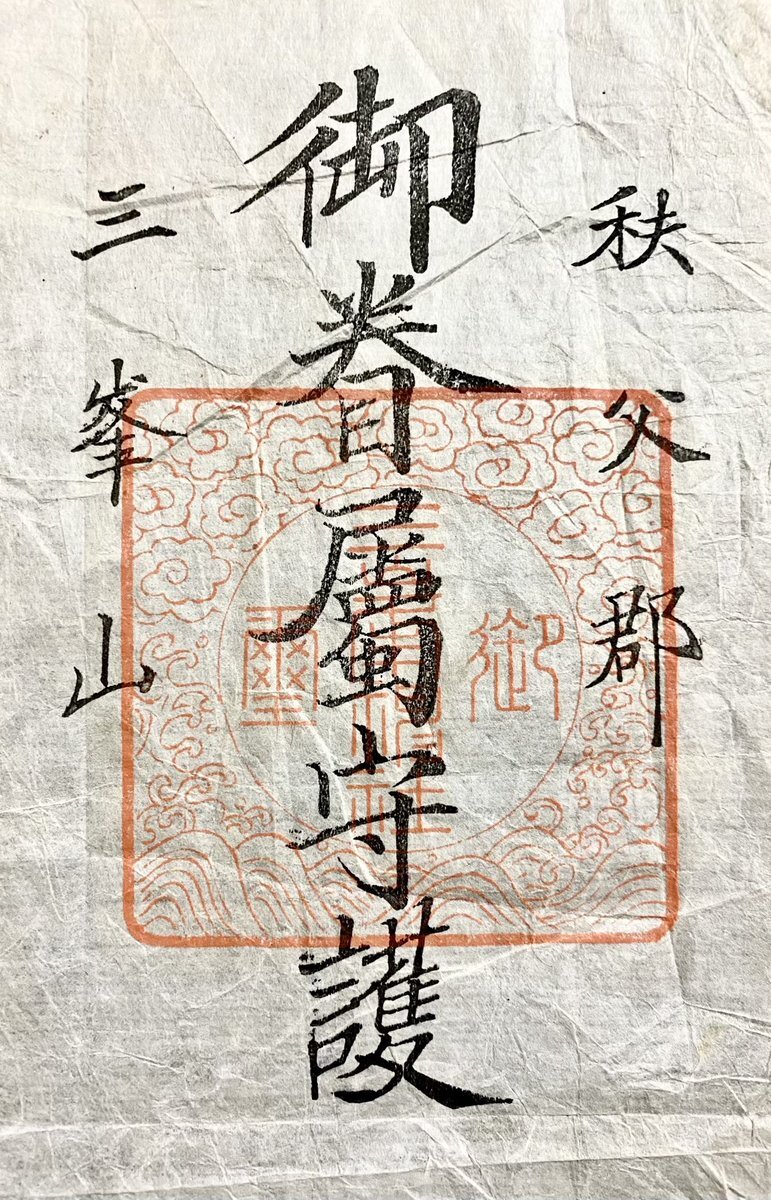 秩父郡
御眷屬守護
三峯山
御
璽